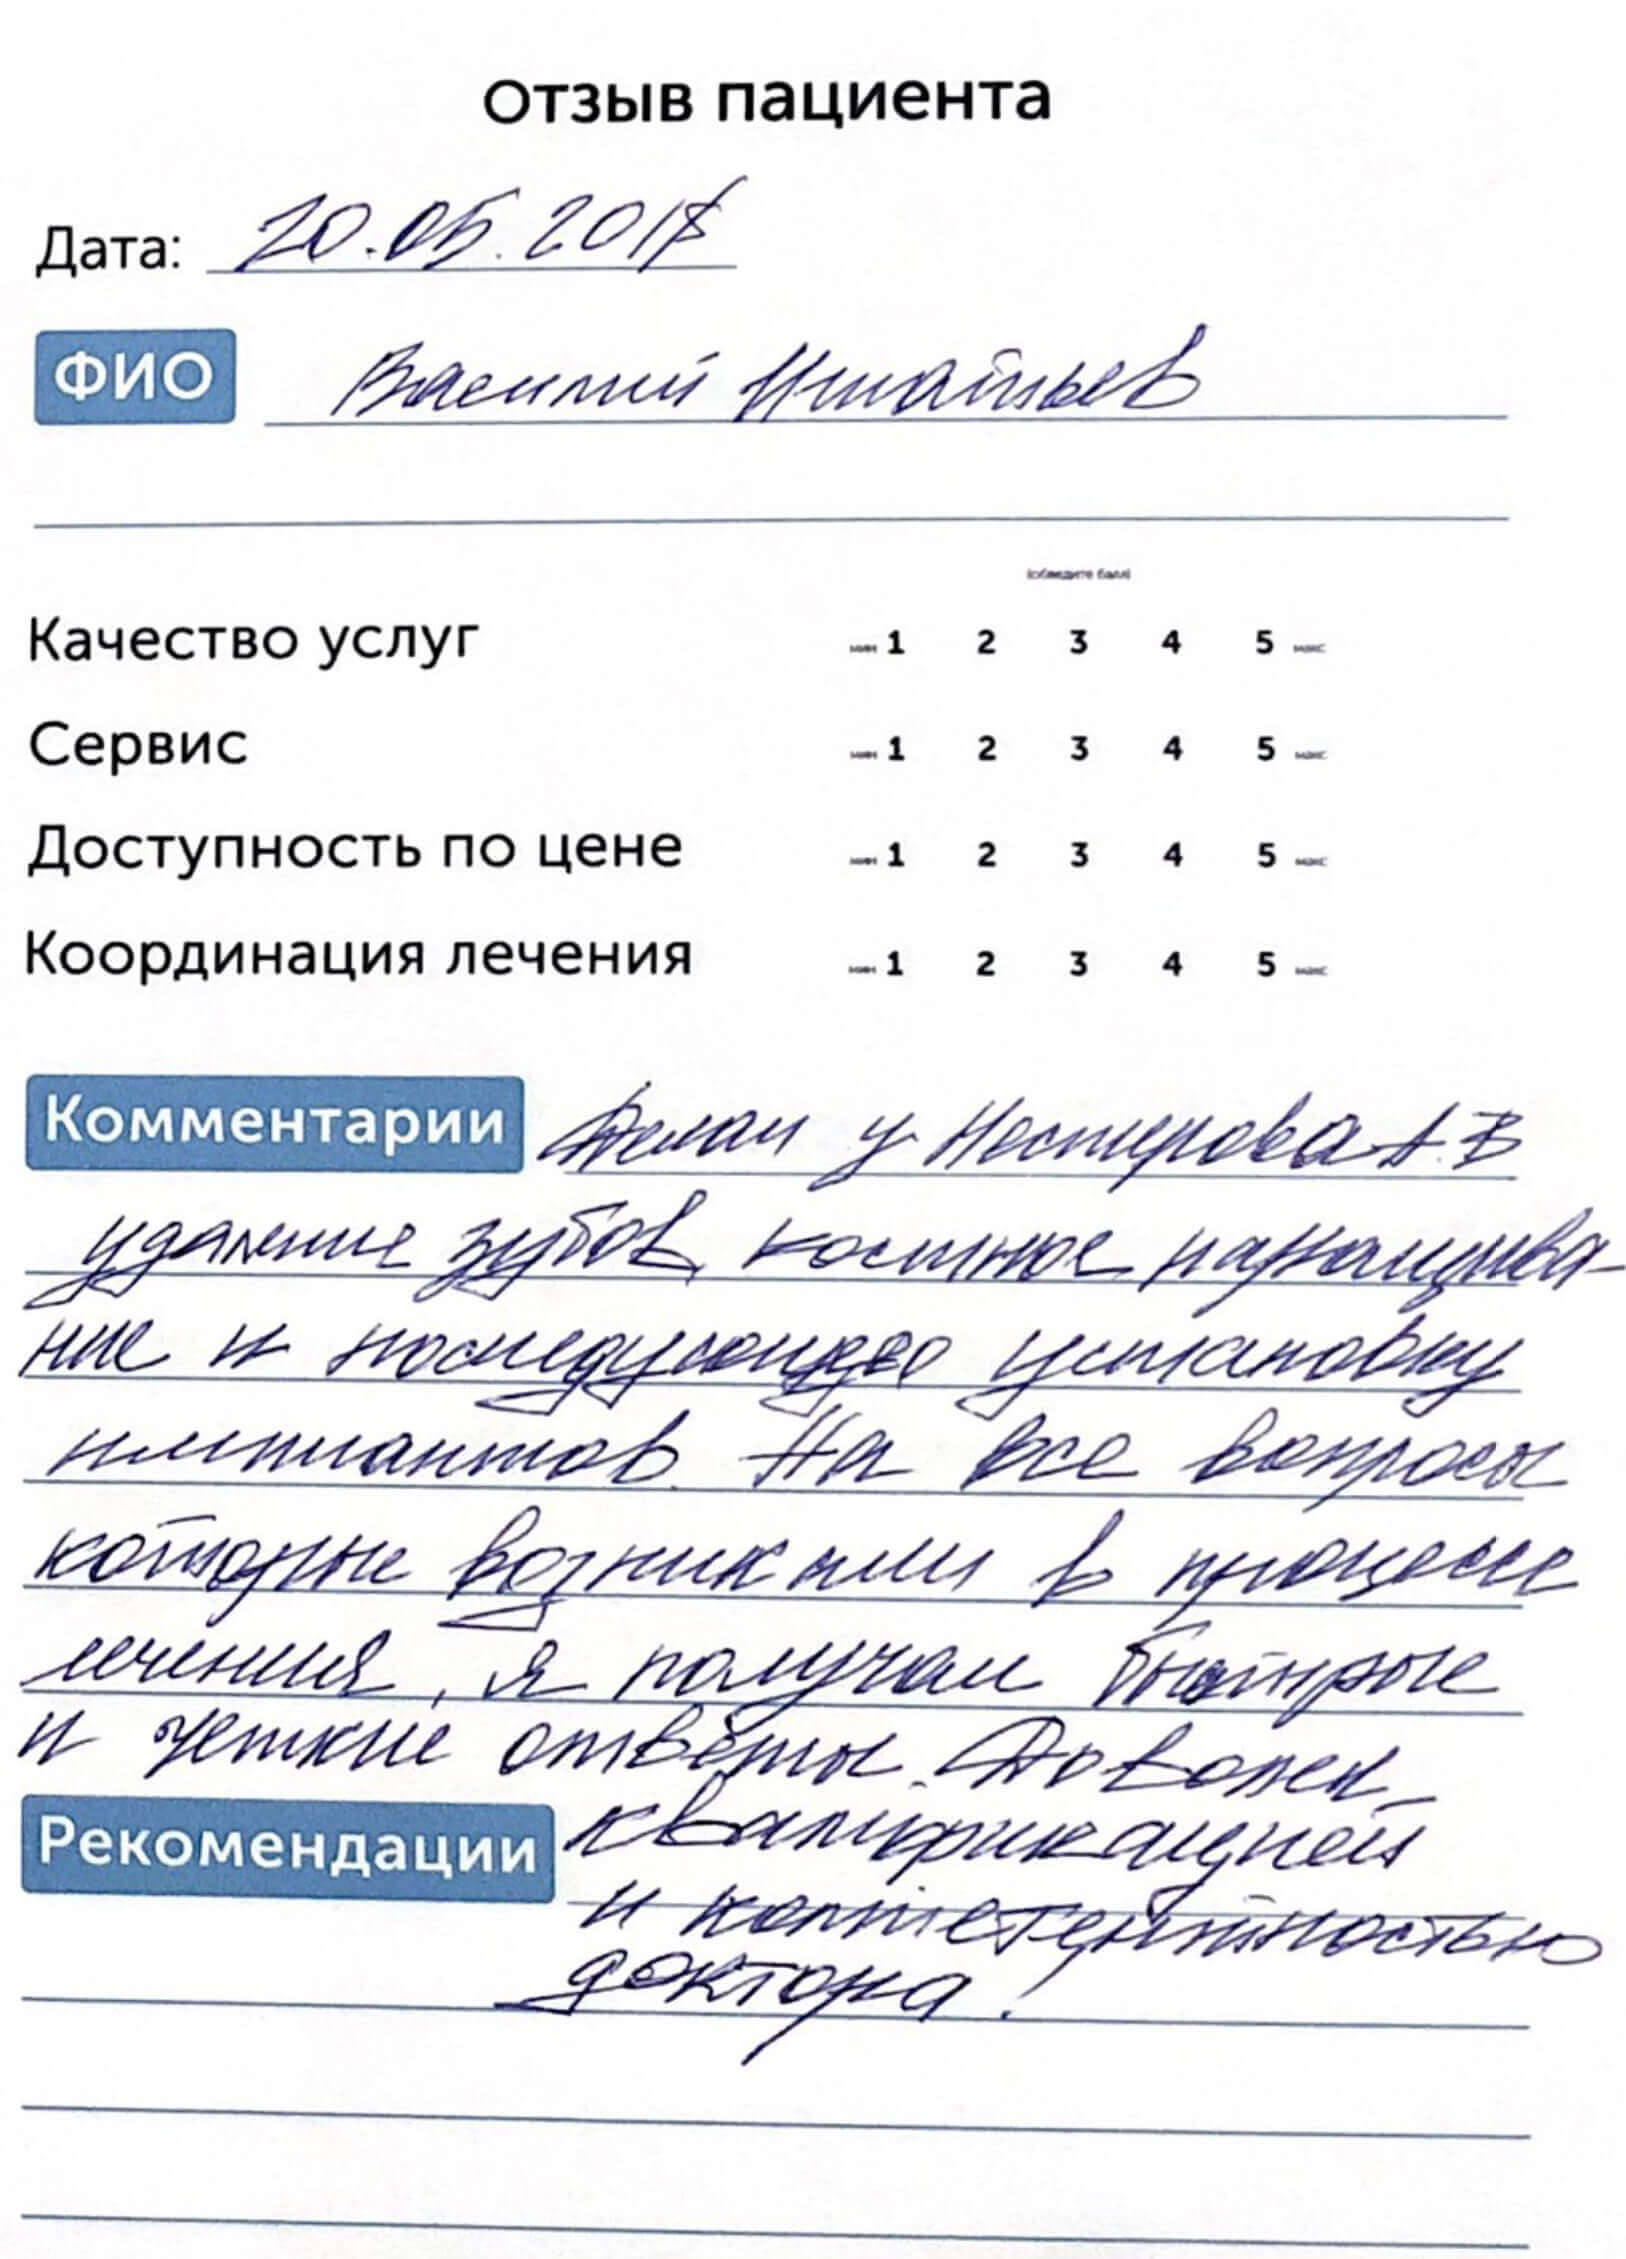 Отзыв пациента
Дата: 20.05.2018
ФИО Василий Игнатьев
(обведите балл)
Качество услуг мин 1 2 3 4 5 макс
Сервис мин 1 2 3 4 5 макс
Доступность по цене мин 1 2 3 4 5 макс
Координация лечения мин 1 2 3 4 5 макс
Комментарии Делал у Нестерова А.В
удаление зубов, костное наращива-
ние и последующую установку
имплантов. На все вопросы
которые возникали в процессе
лечения, я получал быстрые
и четкие ответы. Доволен
Рекомендации квалификацией
и компетентностью
доктора!